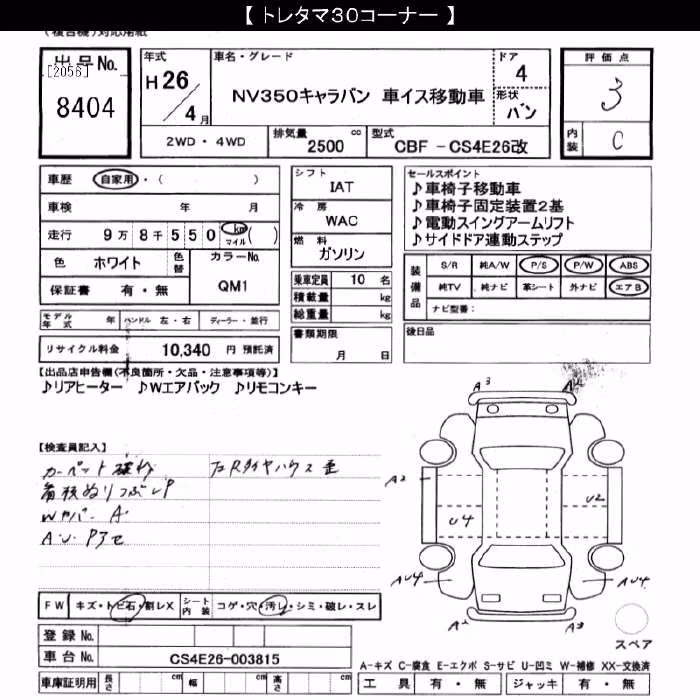 【 トレタマ３０コーナー 】
(複合機)対応用紙
出品No.
[2056]
8404
年式
H26/4月
車名・グレード
NV350キャラバン 車イス移動車
ドア
4
形状
バン
評価点
3
内装
C
2WD・4WD
排気量
2500 cc
型式
CBF － CS4E26改
車歴 自家用・( )
車検 年 月
走行 9万8千550 km マイル ( )
色 ホワイト 色替
カラーNo.
QM1
保証書 有・無
モデル年式 年 ハンドル 左・右 ディーラー・並行
リサイクル料金 10,340 円 預託済
シフト
IAT
冷房
WAC
燃料
ガソリン
乗車定員 10 名
積載量 kg
総重量 kg
書類期限
月 日
セールスポイント
♪車椅子移動車
♪車椅子固定装置2基
♪電動スイングアームリフト
♪サイドドア連動ステップ
装備品
S/R 純A/W P/S P/W ABS
純TV 純ナビ 革シート 外ナビ エアB
ナビ型番：
後日品
【出品店申告欄(不良箇所・欠品・注意事項等)】
♪リアヒーター ♪Wエアバック ♪リモコンキー
【検査員記入】
カーペット破れ
A・U・P3セ
FW キズ・トビ石・割レX
シート内装 コゲ・穴・汚レ・シミ・破レ・スレ
登録 No.
車台 No. CS4E26-003815
車庫証明用 長さ cm 幅 cm 高さ cm
A3
A2
A2
U2
U4
AU4
AU4
A2
A3
スペア
A-キズ C-腐食 E-エクボ S-サビ U-凹ミ W-補修 XX-交換済
工具 有・無 ジャッキ 有・無